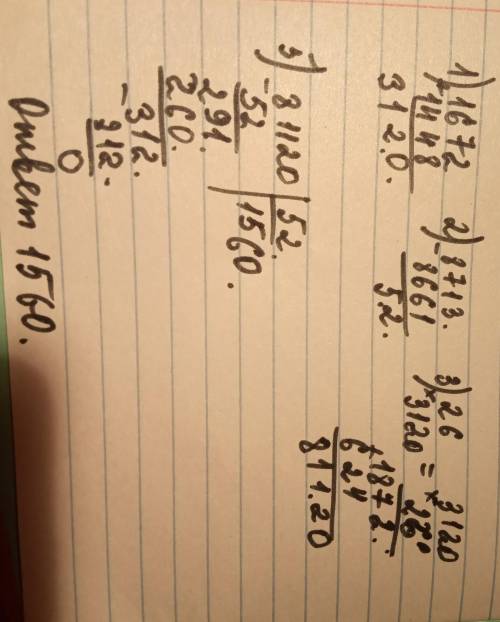 1) 1672 2) 8713. 3) 26
+1448 -8661 ×3120 = ×3120
3120. 52. 26
+1872.
624
811.20
3) 81120 | 52.
-52 1560.
291.
260.
-312.
312.
0
Ответ 1560.